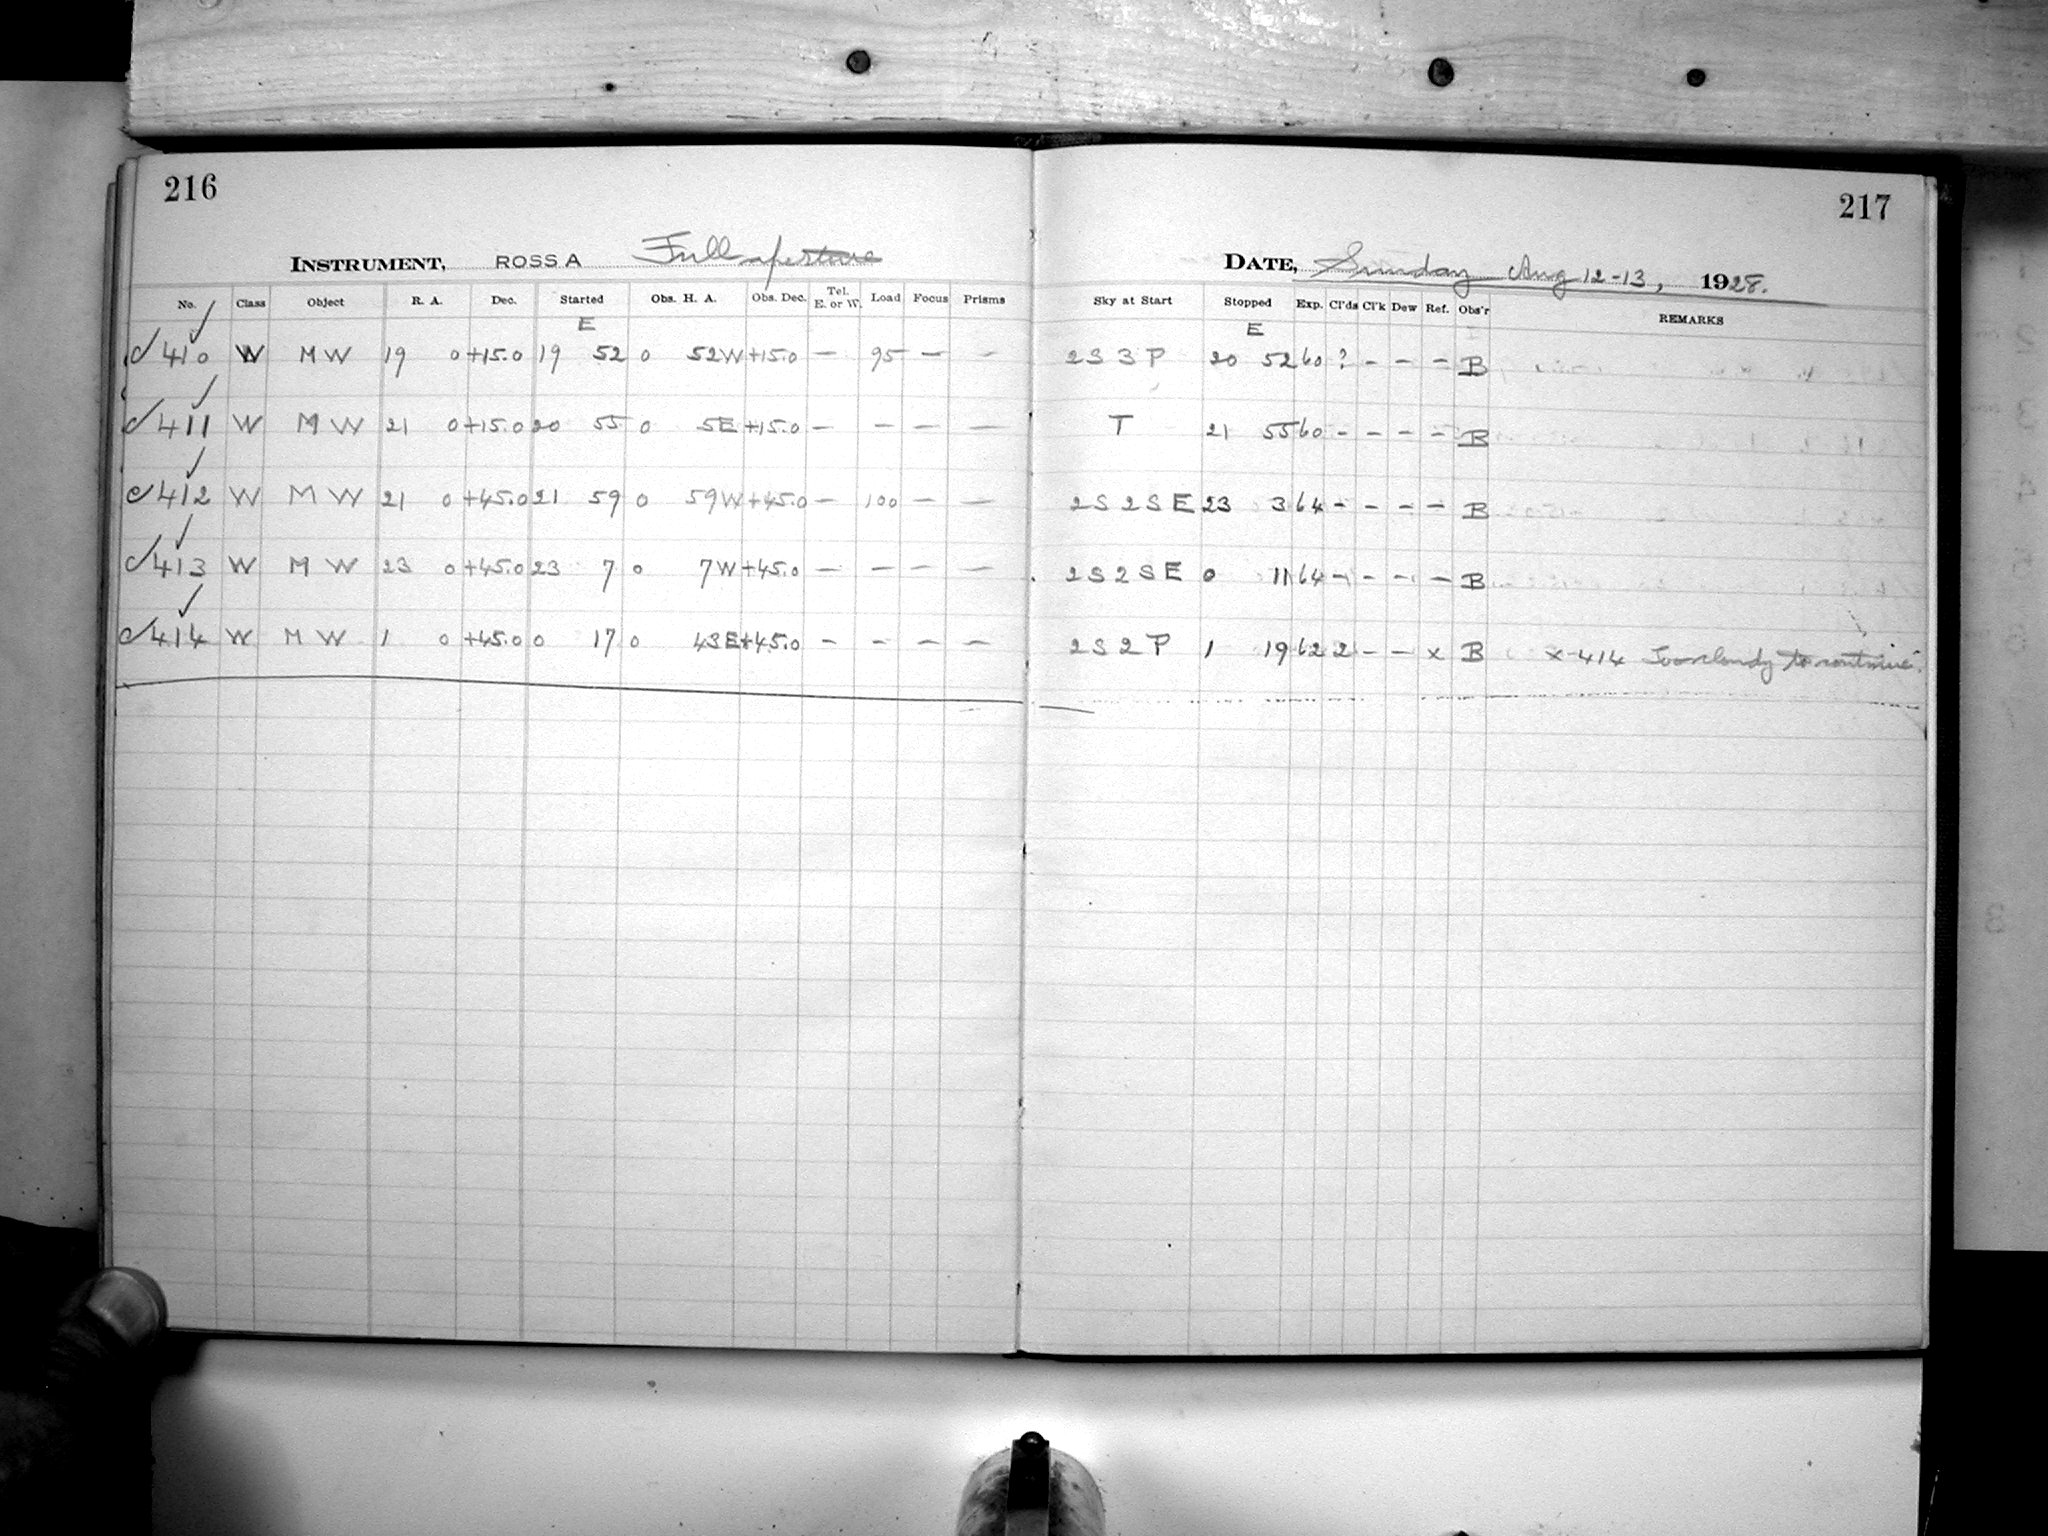 216
INSTRUMENT, ROSS A Full aperture
No. Class Object R. A. Dec. Started Obs. H. A. Obs. Dec. Tel. E. or W. Load Focus Prisms
E
✓410 W M W 19 0 +15.0 19 52 0 52W +15.0 — 95 — —
✓411 W M W 21 0 +15.0 20 55 0 5E +15.0 — — — —
✓412 W M W 21 0 +45.0 21 59 0 59W +45.0 — 100 — —
✓413 W M W 23 0 +45.0 23 7 0 7W +45.0 — — — —
✓414 W M W 1 0 +45.0 0 17 0 43E +45.0 — — — —
217
DATE, Sunday Aug 12-13, 1928.
Sky at Start Stopped Exp. Cl'ds Cl'k Dew Ref. Obs'r REMARKS
E
2S 3P 20 52 60 ? — — — B
T 21 55 60 — — — — B
2S 2SE 23 3 64 — — — — B
2S 2SE 0 11 64 — — — — B
2S 2P 1 19 62 2 — — x B x-414 Too cloudy to continue.